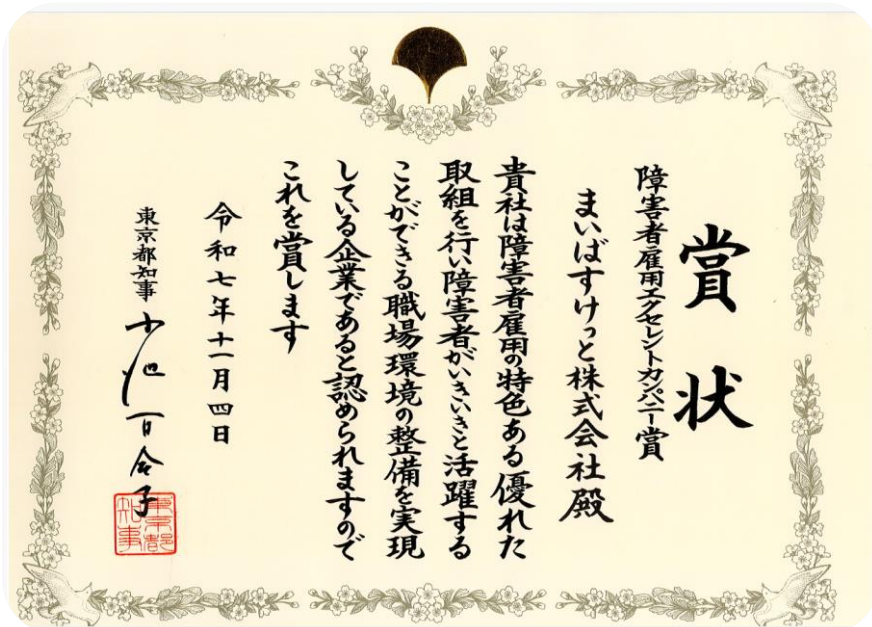 賞状
障害者雇用エクセレントカンパニー賞
まいばすけっと株式会社殿
貴社は障害者雇用の特色ある優れた
取組を行い障害者がいきいきと活躍する
ことができる職場環境の整備を実現
している企業であると認められますので
これを賞します
令和七年十一月四日
東京都知事 小池百合子
東京都知事